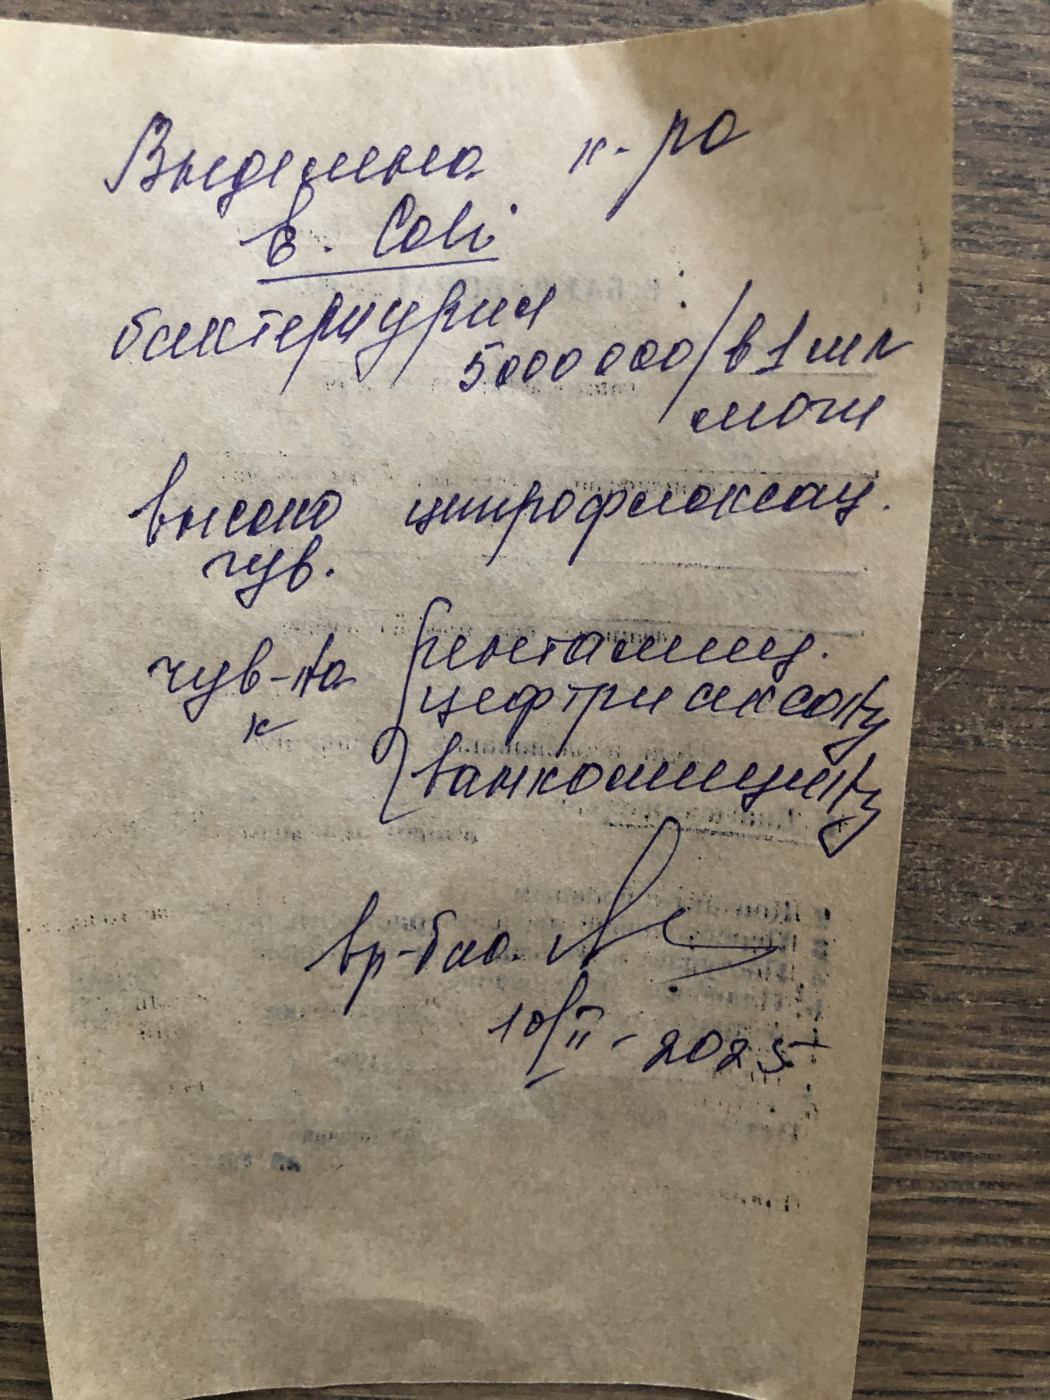 Выделена к-ра
E. Coli
бактериурия
5000000/в 1 мл
мочи
высоко ципрофлоксац.
чув.
чув-на гентамиц.
к цефтриаксону
ванкомицину
вр-бак.
10/II - 2025